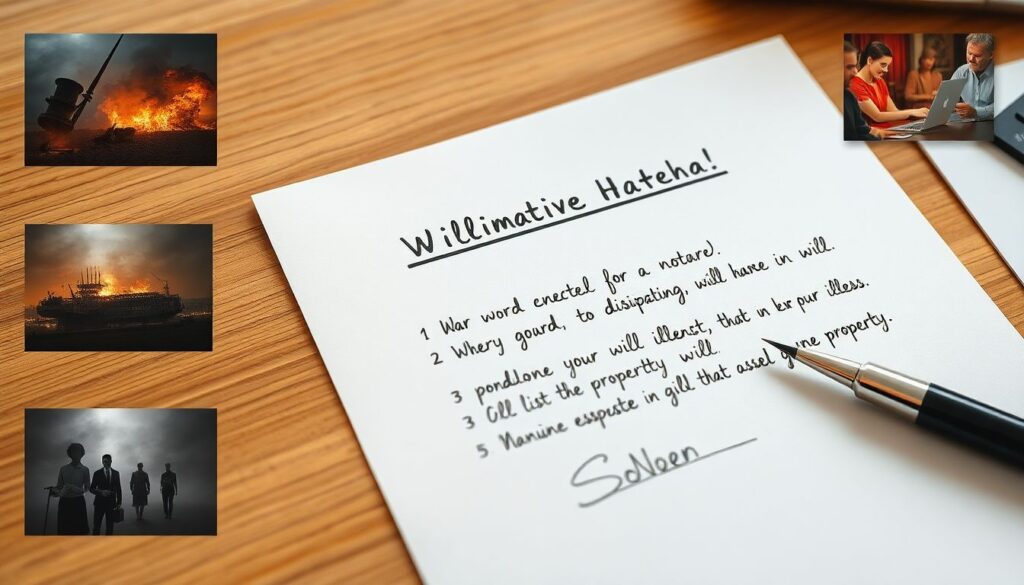 Willimative Hateha!
1 War word enectel for a notare!.
2 Whery gourd, to disipating, will harse in will.
3 pondlone your will illenst, that in ks pur illess.
3 Cll list the propertty will.
5 Nanine esspuste in gill that assel g ne property.
SoNoen